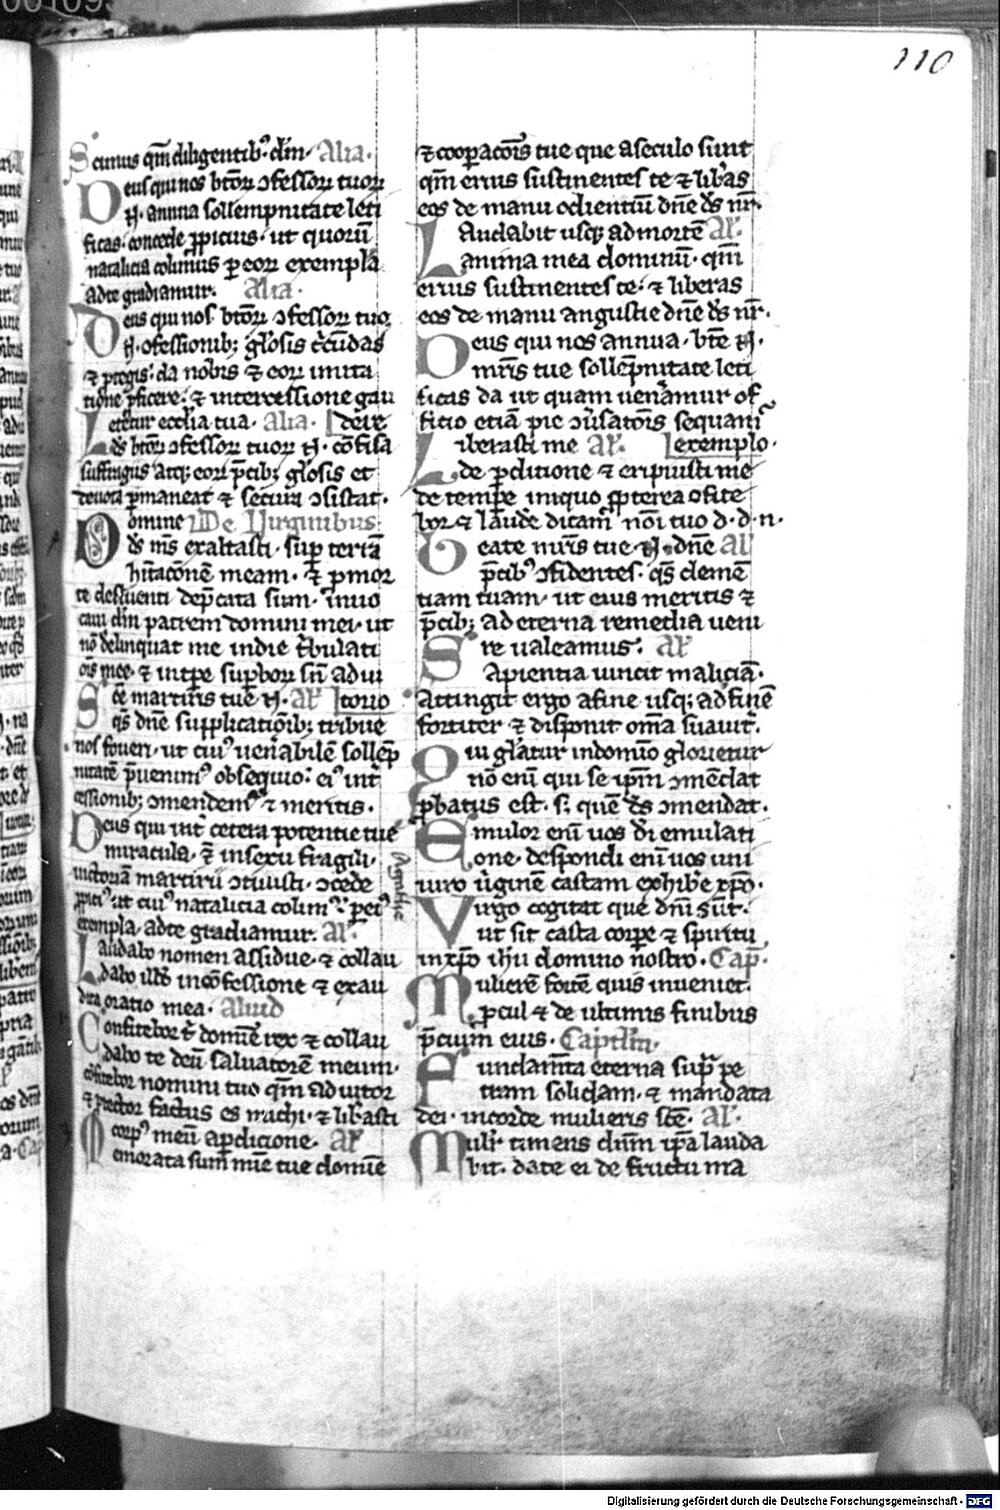 110
Scimus qm̄ diligentib⁹ dm̄. Alia.
Deus qui nos btōꝝ ↄfessoꝝ tuoꝝ
N. annua sollempnitate leti
ficas. concede ꝓpicius. ut quorū
natalicia colimus ꝑ eoꝝ exempla
ad te gradiamur. Alia.
Deus qui nos btōꝝ ↄfessoꝝ tuoꝝ
N. ↄfessionib; glōsis c̄cūdas
⁊ ꝓtegis. da nobis ⁊ eoꝝ imita
tione ꝓficere. ⁊ intercessione gau
letetur eccl̄ia tua. Alia. dere
ds̄ btōꝝ ↄfessoꝝ tuoꝝ N. cōfisa
suffragiis atq; eoꝝ p̄cib; glōsis et
deuota ꝑmaneat ⁊ secura ↄsistat.
Domine De Virginibus.
ds̄ ms̄ exaltasti. suꝑ terrā
hītacōnē meam. ⁊ ꝑ mor
te defluenti dep̄cata sum. inuo
caui dm̄ patrem domini mei. ut
nō delinquat me in die t̄bulati
ōis mee. ⁊ in tpe suꝑboꝝ sn̄ adiu
Sc̄e martiris tue N. Al̄ torio
qs̄ dn̄e supplicatiōib; tribue
nos foueri. ut cui⁹ uen̄abilē sollēp
nitatē p̄uenim⁹ obsequio. ei⁹ int̄
cessionib; ↄmendem⁹ ⁊ meritis.
Deus qui int̄ cetera potentie tue
miracula. ⁊ in sexu fragili.
uictoriā martirii ↄtulisti. ↄcede
ꝓpici⁹ ut cui⁹ natalicia colim⁹. ꝑ ei⁹
exempla. ad te gradiamur. Al̄.
Laudabo nomen assidue. ⁊ collau
dabo illd̄ in cōfessione ⁊ exau
dita oratio mea. Aliud
Confitebor t̄ domine rex ⁊ collau
dabo te deū saluatorē meum.
cōfitebor nomini tuo qm̄ adiutor
⁊ ꝓtector factus es michi. ⁊ lib̄asti
corp⁹ meū a ꝑdicione. Al̄
Memorata sum mīe tue domine
⁊ cooꝑacōis tue que a seculo sunt
qm̄ eruis sustinentes te ⁊ lib̄as
eos de manu odientiū dn̄e ds̄ nr̄.
Laudabit usq; ad mortē Al̄.
anima mea dominū. qm̄
eruis sustinentes te. ⁊ liberas
eos de manu angustie dn̄e ds̄ nr̄.
Deus qui nos annua. bt̄e N.
mr̄is tue sollēpnitate leti
ficas da ut quam uen̄amur of
ficio etiā pie ↄūsatōis sequam̄
Liberasti me Al̄. exemplo.
de ꝑditione ⁊ eripuisti me
de tempe iniquo ꝓpterea ↄfite
bor ⁊ laude dicam noī tuo d. d. n.
Beate mr̄is tue N. dn̄e Al̄
p̄cib⁹ ↄfidentes. qs̄ clemē
tiam tuam. ut eius meritis ⁊
p̄cib; ad eterna remedia ueni
re ualeamus. Al̄
Sapientia uincit maliciā.
Attingit ergo a fine usq; ad finē
fortiter ⁊ disponit om̄a suauit̄.
Qui gl̄atur in domino glorietur
nō enī qui se ip̄m ↄmēdat
ꝓbatus est. s; quē ds̄ ↄmendat.
Emulor enī uos di emulati
one. despondi enī uos uni
uiro ūginē castam exhib̄e xp̄o.
Virgo cogitat que dnī sūt.
ut sit casta corpe ⁊ spiritu
in xp̄o ih̄u domino nostro. Cap̄.
Mulierē fortē quis inueniet.
ꝓcul ⁊ de ultimis finibus
p̄cium eius. Captl̄m.
Fundamta eterna suꝑ pe
tram solidam. ⁊ mandata
dei. in corde mulieris sc̄e. Al̄.
Muli̅ timens dūm ip̄a lauda
bit. date ei de fructu ma
Digitalisierung gefördert durch die Deutsche Forschungsgemeinschaft - DFG